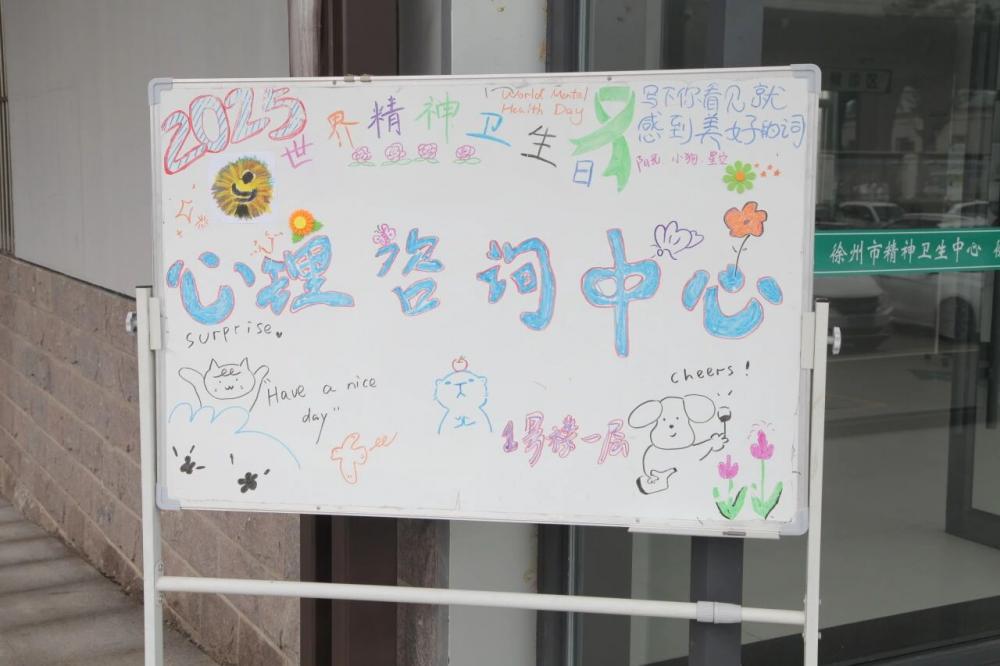 2025世界精神卫生日
World Mental
Health Day
写下你看见就
感到美好的词
阳光 小狗 星空
徐州市精神卫生中心
心理咨询中心
surprise.
cheers!
"Have a nice
day"
1号楼一层